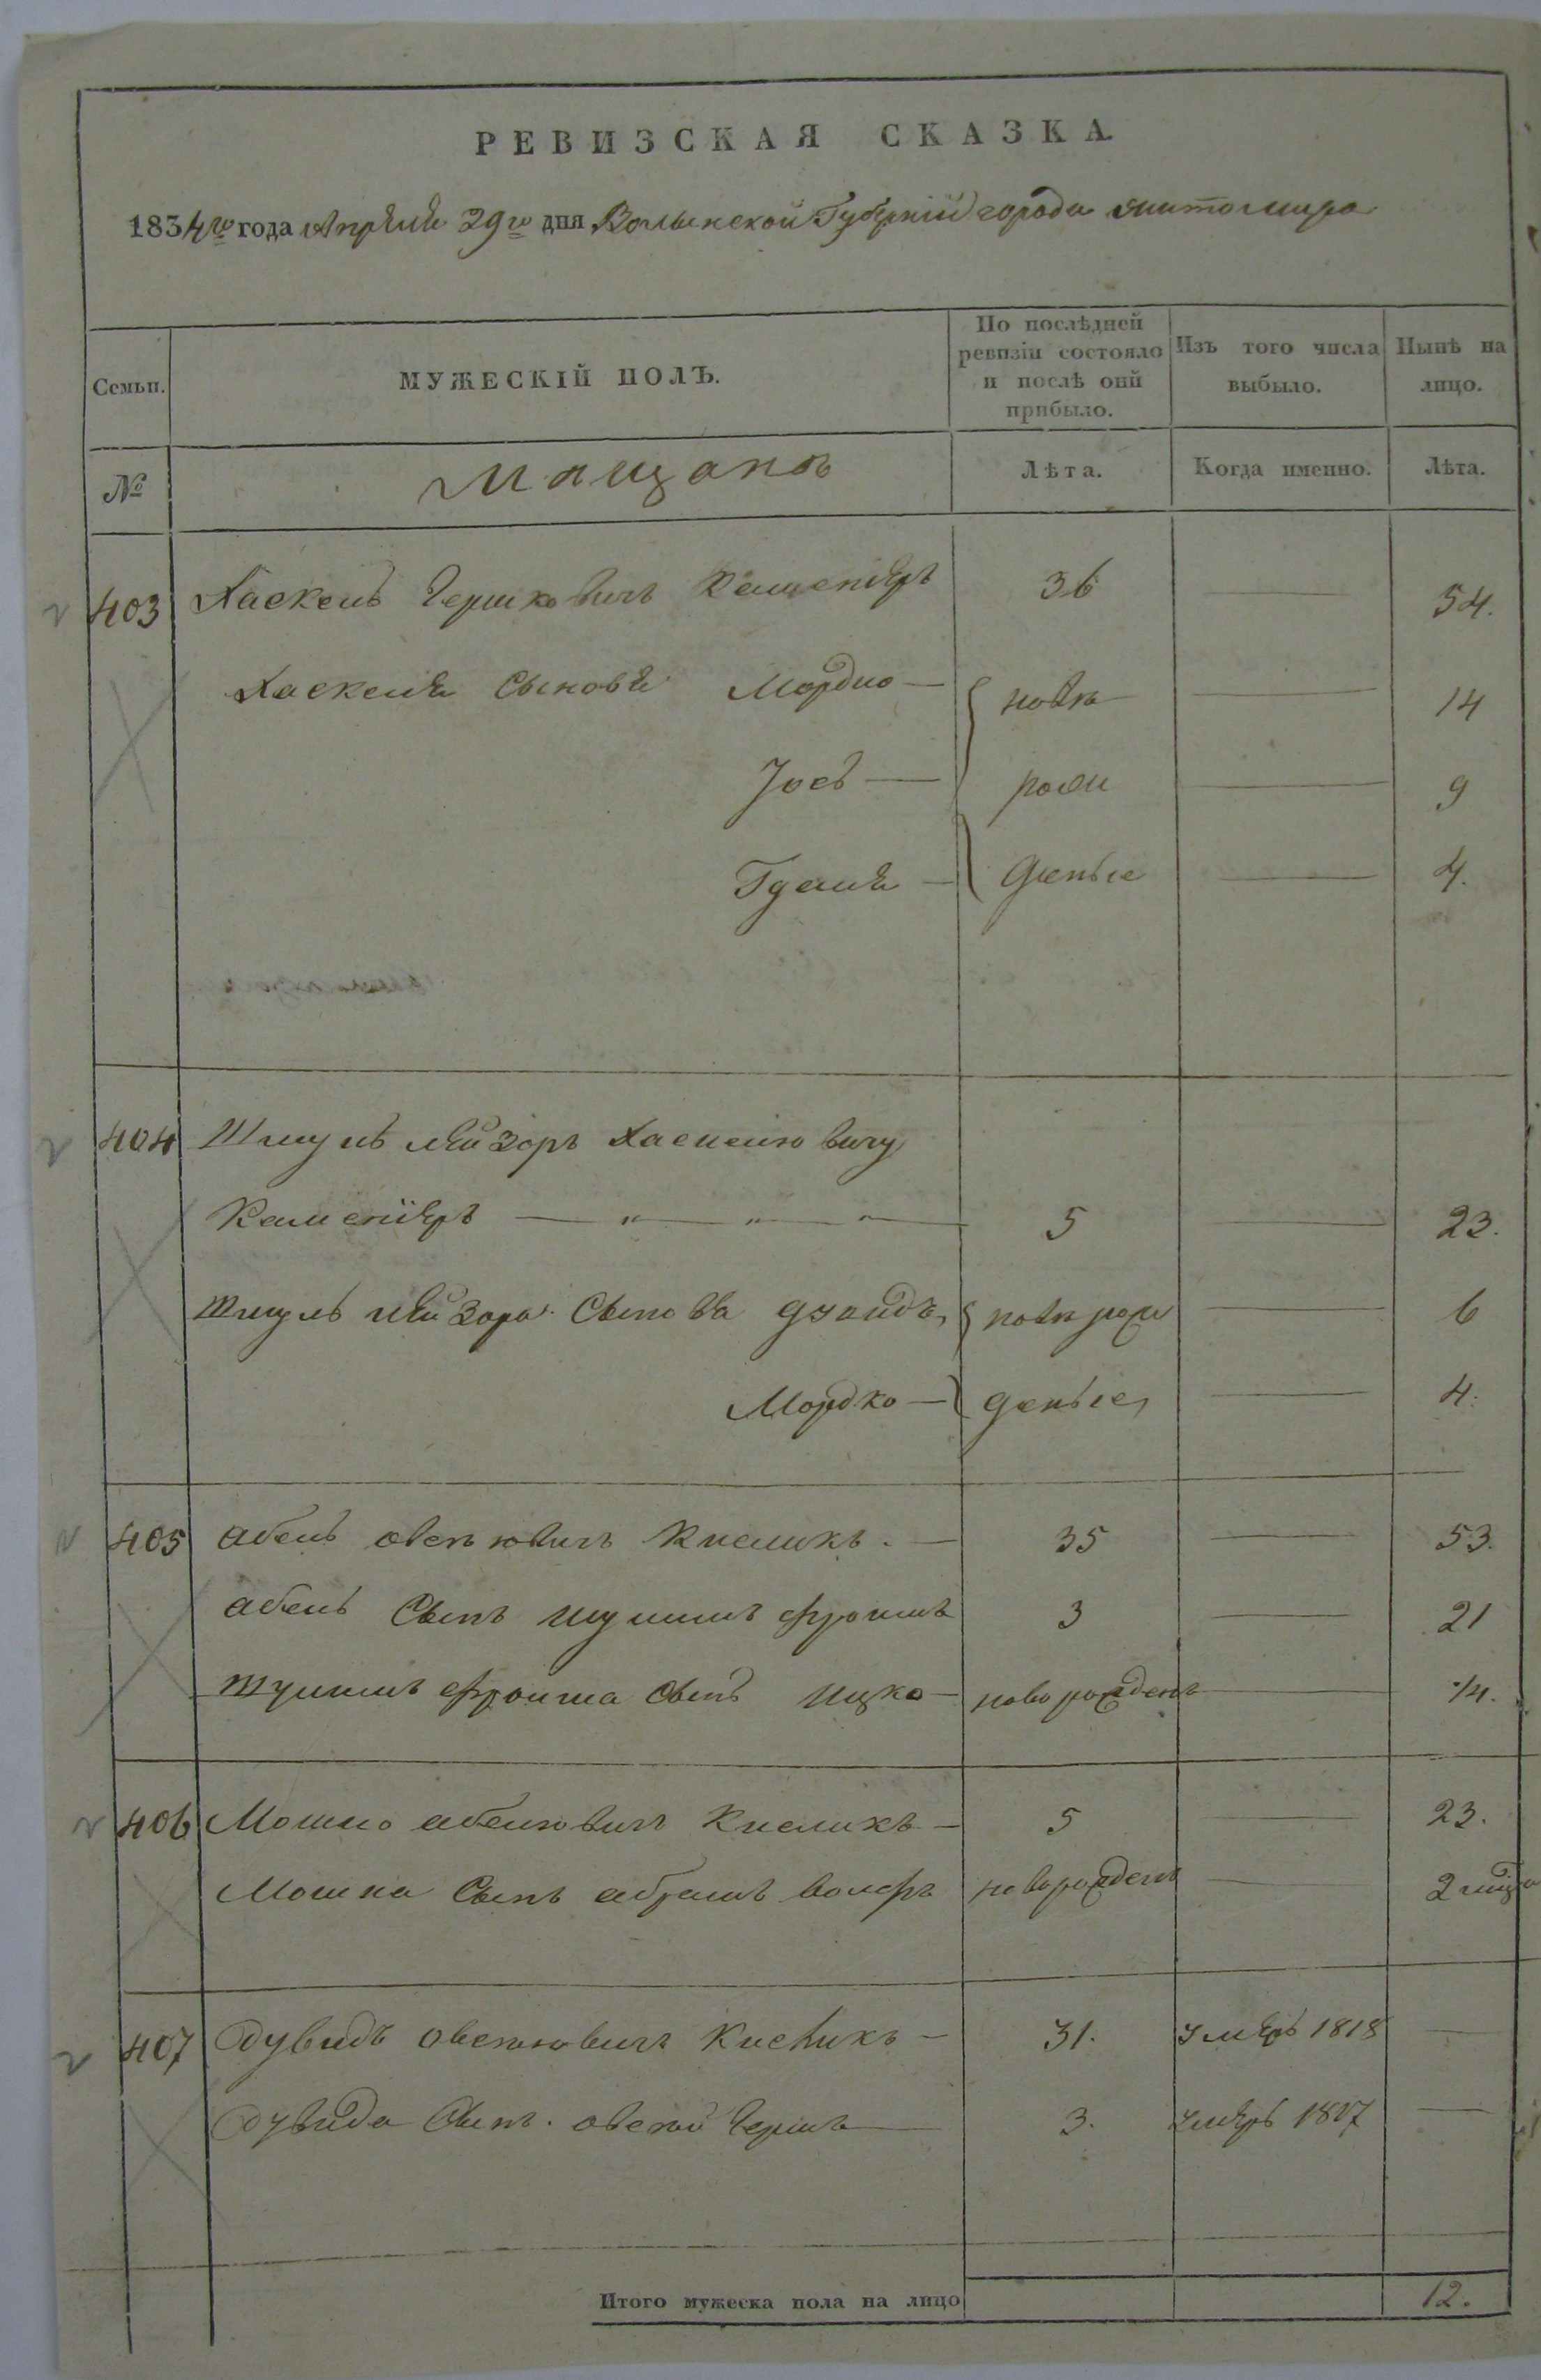 РЕВИЗСКАЯ СКАЗКА.
1834го года Апреля 29го дня Волынской Губерніи города Житомира
Семьи.
МУЖЕСКІЙ ПОЛЪ.
По послѣдней ревизіи состояло и послѣ оной прибыло.
Изъ того числа выбыло.
Нынѣ на лицо.
№
Мѣщанъ
Лѣта.
Когда именно.
Лѣта.
403 Хаскель Гершковичъ Каменяръ 36 — 54.
Хаскеля Сыновя Мордко — новъ — 14
Іосъ — рож — 9
— деные — 4.
404 Шмуль Лейзоръ Хаскелювичъ
Каменяръ — " — " — " — 5 — 23.
Шмуль Лейзора Сынова Дувидъ, новорож — 6
Мордко — деные — 4.
405 Абель Овсеювичъ Кисликъ. — 35 — 53.
Абеля Сынъ Шулимъ Фроимъ 3 — 21
Шулимъ Фроима Сынъ Ицко — новорожденъ — 1/4.
406 Мошко Абелювичъ Кисликъ — 5 — 23.
Мошка Сынъ Абрамъ Волфъ новорожденъ — 2 мца
407 Дувидъ Овсеювичъ Кисликъ — 31. умеръ 1818 —
Дувида Сынъ. Овсей Гершъ — 3. умеръ 1817 —
Итого мужеска пола на лицо 12.